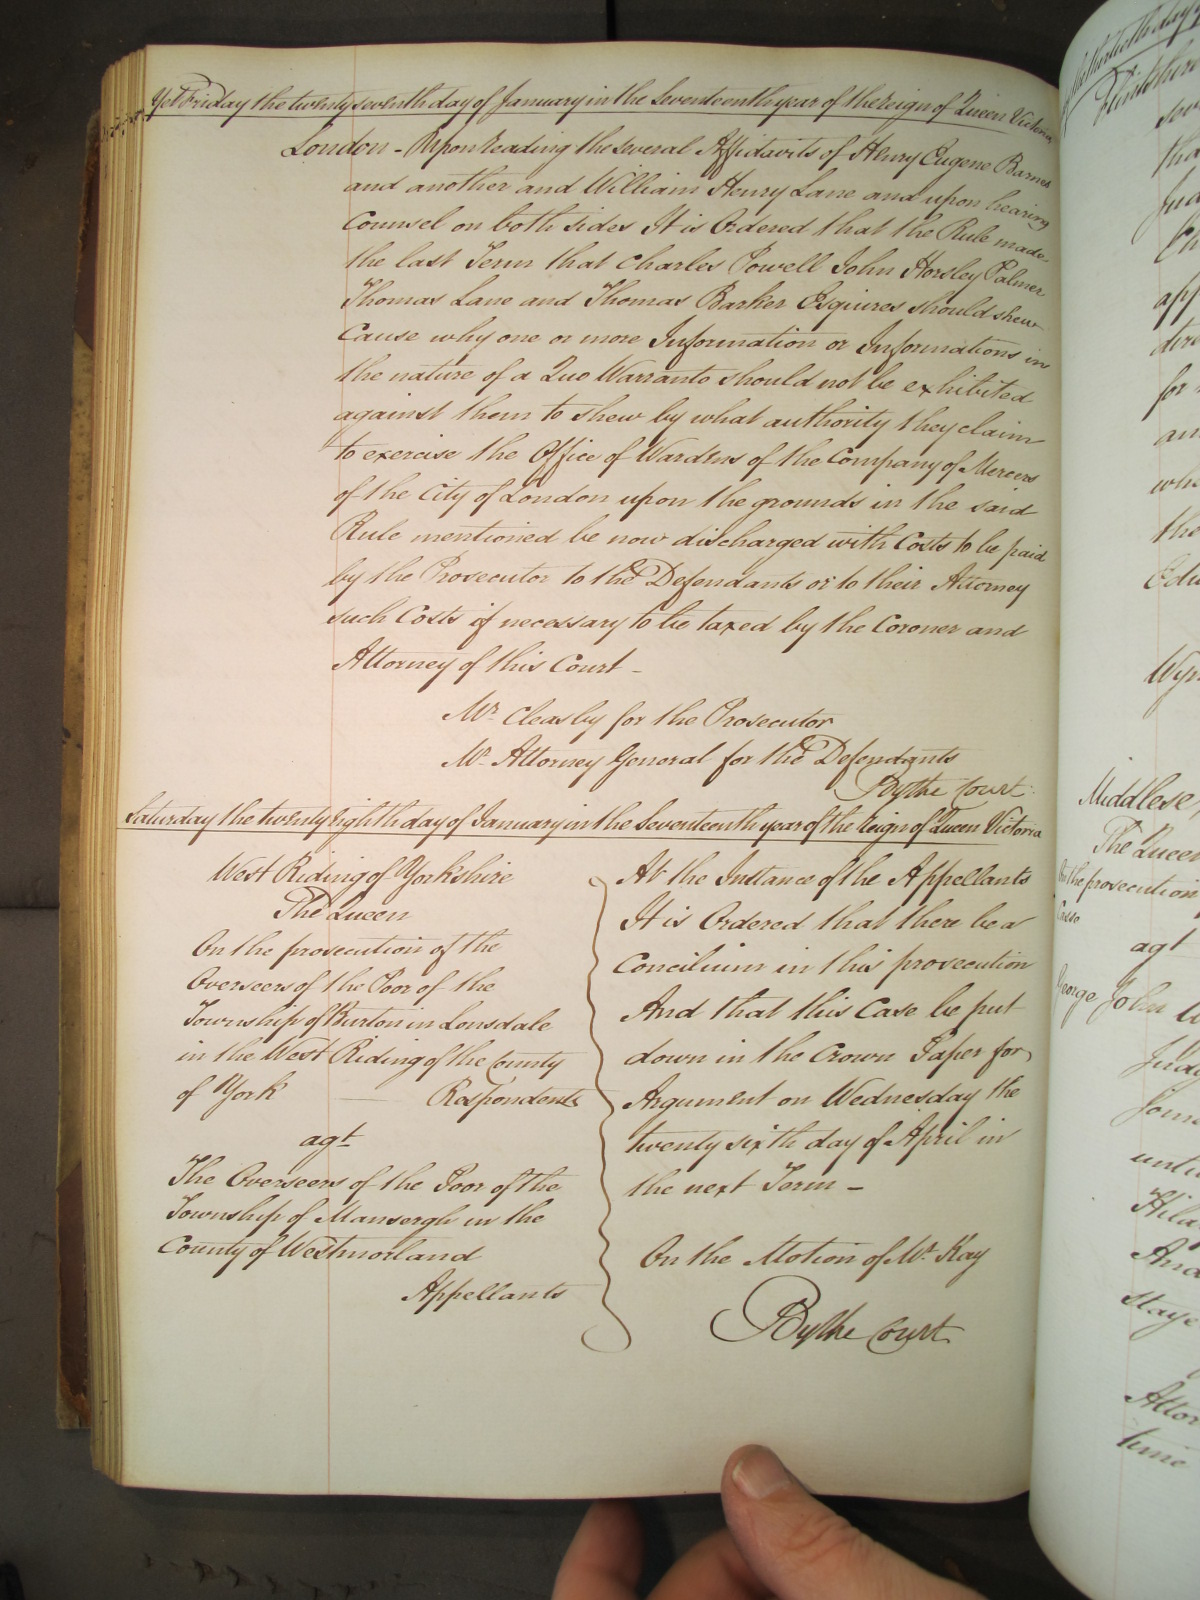 Yet Friday the twenty seventh day of January in the Seventeenth year of the Reign of Queen Victoria
London - Upon reading the several Affidavits of Henry Eugene Barnes
and another and William Henry Lane and upon hearing
Counsel on both sides It is Ordered that the Rule made
the last Term that Charles Powell John Horsley Palmer
Thomas Lane and Thomas Barker Esquires should shew
Cause why one or more Information or Informations in
the nature of a Quo Warranto should not be exhibited
against them to shew by what authority they claim
to exercise the Office of Wardens of the Company of Mercers
of the City of London upon the grounds in the said
Rule mentioned be now discharged with Costs to be paid
by the Prosecutor to the Defendants or to their Attorney
such Costs if necessary to be taxed by the Coroner and
Attorney of this Court -
Mr. Cleasby for the Prosecutor
Mr. Attorney General for the Defendants
By the Court.
Saturday the twenty eighth day of January in the Seventeenth year of the Reign of Queen Victoria
West Riding of Yorkshire
The Queen
On the prosecution of the
Overseers of the Poor of the
Township of Burton in Lonsdale
in the West Riding of the County
of York Respondents
agt
The Overseers of the Poor of the
Township of Mansergh in the
County of Westmorland
Appellants
At the Instance of the Appellants
It is Ordered that there be a
Concilium in this prosecution
And that this Case be put
down in the Crown Paper for
Argument on Wednesday the
twenty sixth day of April in
the next Term -
On the Motion of Mr. Kay
By the Court
Middlesex
The Queen
On the prosecution
agt
George John